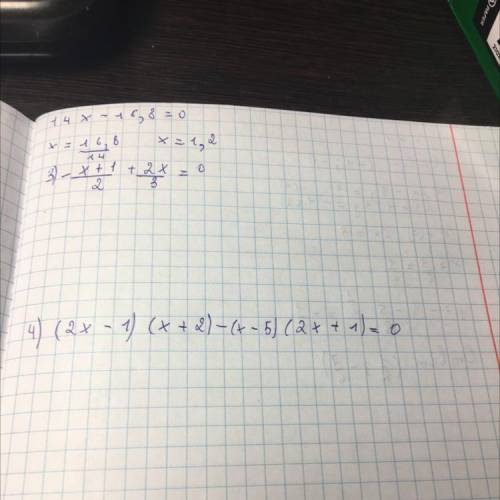 14x - 16,8 = 0
x = 16,8/14 x = 1,2
3) - x+1/2 + 2x/3 = 0
4) (2x - 1) (x + 2) - (x - 5) (2x + 1) = 0